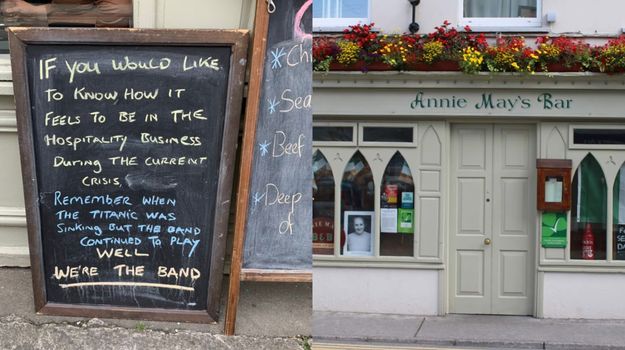 IF YOU WOULD LIKE
TO KNOW HOW IT
FEELS TO BE IN THE
HOSPITALITY BUSINESS
DURING THE CURRENT
CRISIS,
REMEMBER WHEN
THE TITANIC WAS
SINKING BUT THE BAND
CONTINUED TO PLAY
WELL
WE'RE THE BAND
* Sea
* Beef
* Deep
of
Annie May's Bar